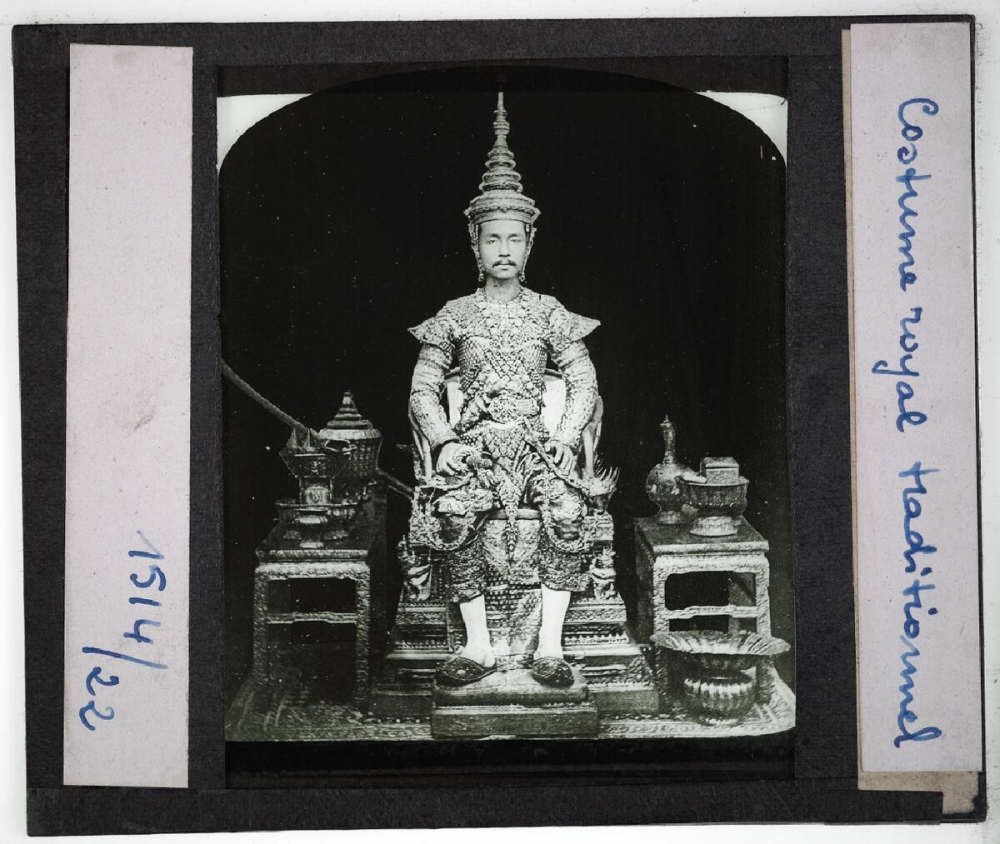 1514/22
Costume royal traditionnel